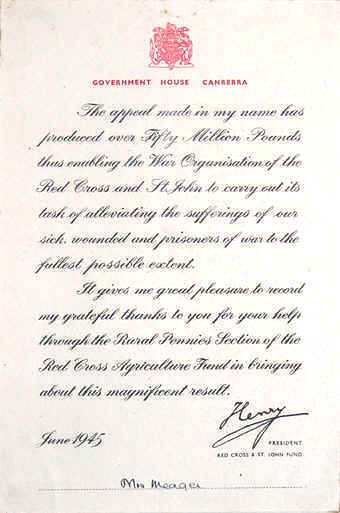 GOVERNMENT HOUSE CANBERRA
The appeal made in my name has
produced over Fifty Million Pounds
thus enabling the War Organisation of the
Red Cross and St. John to carry out its
task of alleviating the sufferings of our
sick, wounded and prisoners of war to the
fullest possible extent.
It gives me great pleasure to record
my grateful thanks to you for your help
through the Rural Pennies Section of the
Red Cross Agriculture Fund in bringing
about this magnificent result.
Henry
June 1945
PRESIDENT
RED CROSS & ST. JOHN FUND
Mrs Meager